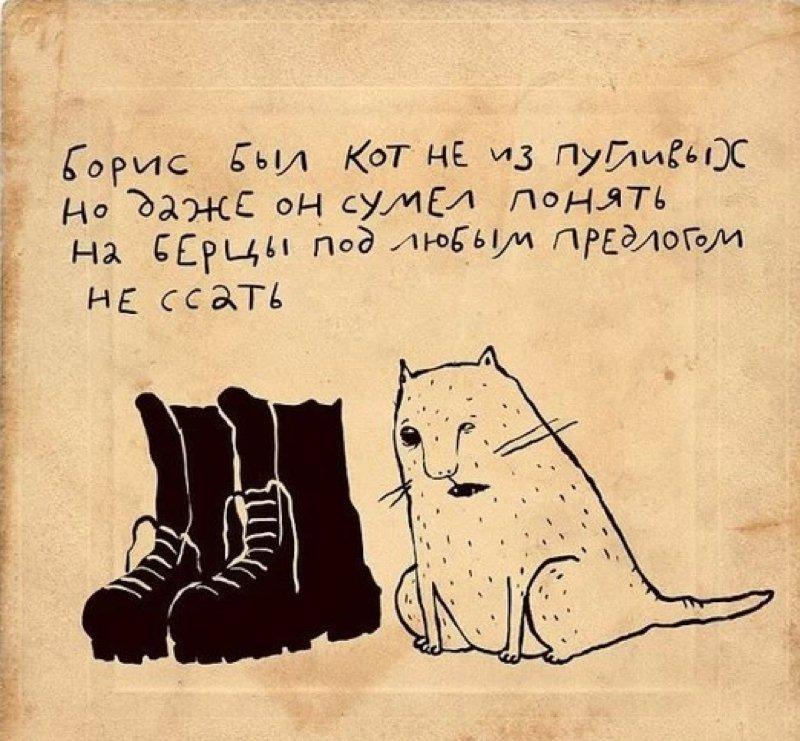 Борис был кот не из пугливых
но даже он сумел понять
на берцы под любым предлогом
не ссать